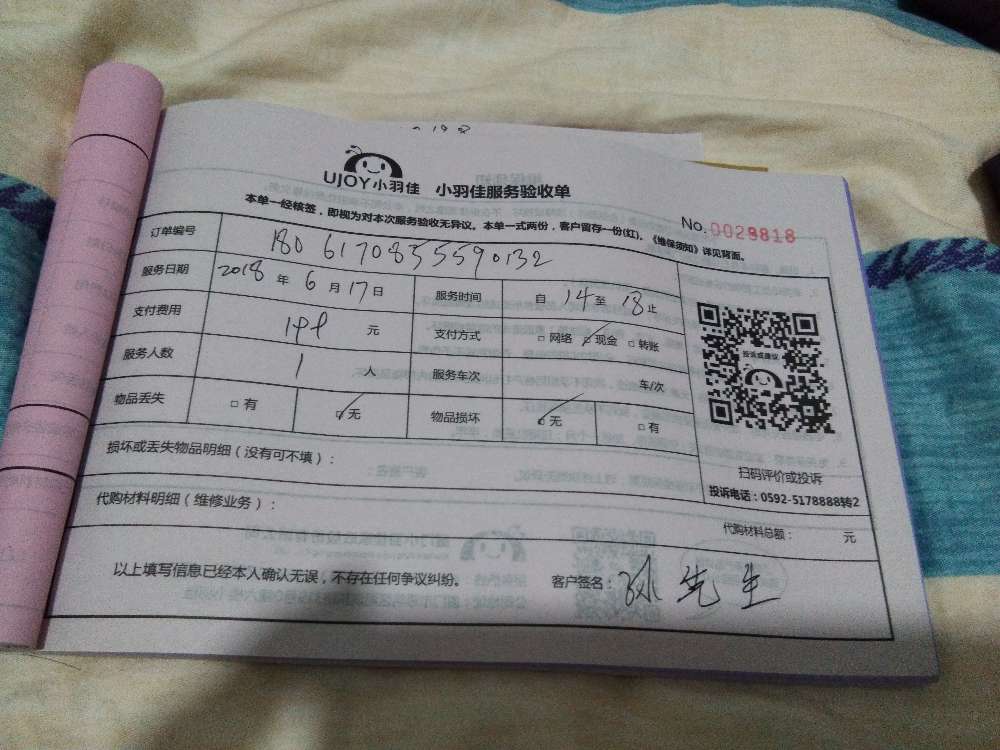 UJOY小羽佳 小羽佳服务验收单
No.0029818
本单一经核签,即视为对本次服务验收无异议。本单一式两份,客户留存一份(红)。《维保须知》详见背面。
订单编号 1806170855590132
服务日期 2018年6月17日 服务时间 自14至18止
支付费用 元 支付方式 □网络 ☑现金 □转账
服务人数 1人 服务车次 车/次
物品丢失 □有 ☑无 物品损坏 ☑无 □有
投诉或建议
扫码评价或投诉
投诉电话:0592-5178888转2
损坏或丢失物品明细(没有可不填):
代购材料明细(维修业务):
代购材料总额: 元
以上填写信息已经本人确认无误,不存在任何争议纠纷。 客户签名:孙先生